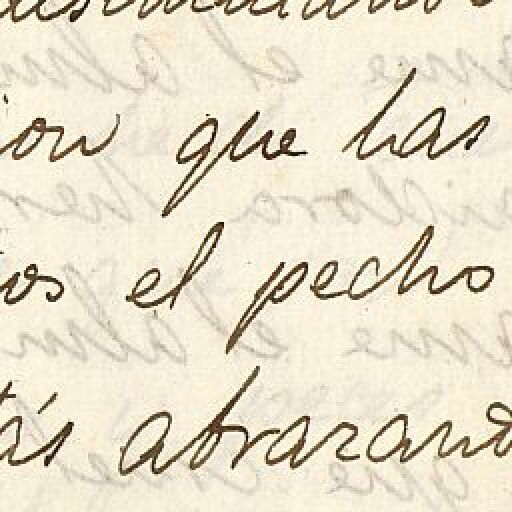 ion que has
os el pecho
tás abrazand